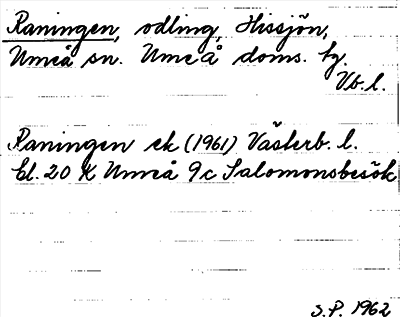 Raningen, odling, Hissjön,
Umeå sn. Umeå doms. hg.
Vb. l.
Raningen ek (1961) Västerb. l.
bl. 20 K Umeå 9c Salomonsbesök
S.P. 1962